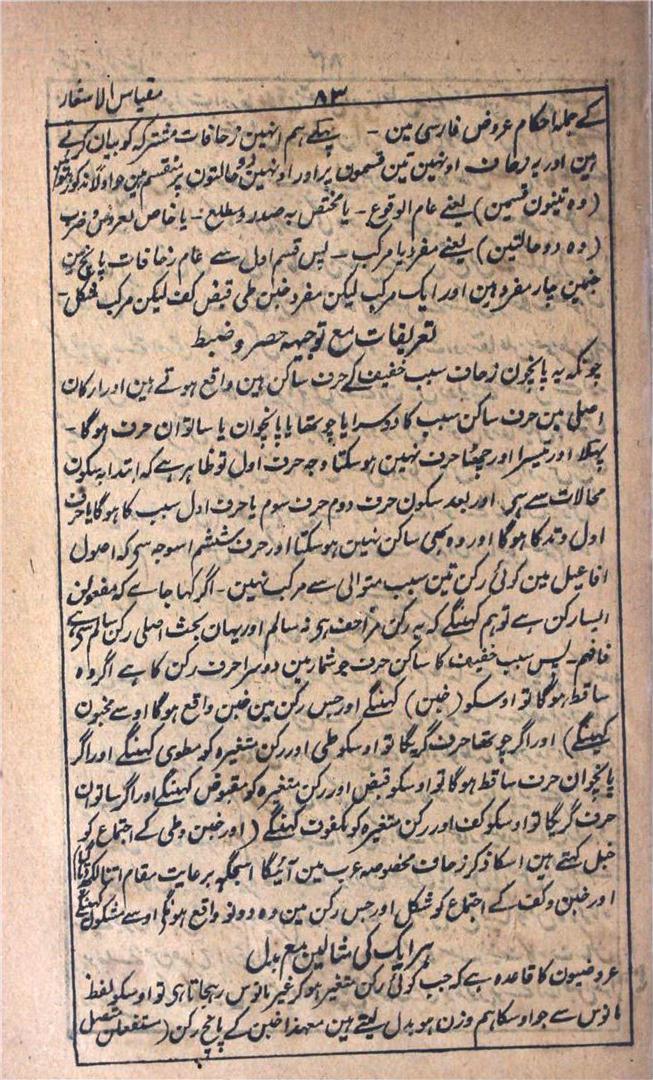 مقیاس الاشعار
۸۳
کے جملہ احکام عروض فارسی مین - پہلے ہم انہین زحافات مشترکہ کو بیان کرتے
ہین اور یہ زحاف اونہین تین قسمون پر اور اونہین دو حالتون پر منقسم ہین جو اولاً مذکور ہوا
(وہ تینون قسمین) یعنے عام الوقوع - یا مختص بہ صدر و مطلع - یا خاص بعروض و ضرب
(وہ دو حالتین) یعنے مفرد یا مرکب - پس قسم اول سے عام زحافات پانچ ہین
جنمین چار مفرد ہین اور ایک مرکب لیکن مفرد خبن طی قبض کف لیکن مرکب شکل -
تعریفات مع توجیہ حصر و ضبط
چونکہ یہ پانچون زحاف سبب خفیف کے حرف ساکن ہین واقع ہوتے ہین اور ارکان
اصلی مین حرف ساکن سبب کا دوسرا یا چوتھا یا پانچوان یا ساتوان حرف ہوگا -
پہلا اور تیسرا اور چھٹا حرف نہین ہو سکتا وجہ حرف اول تو ظاہر ہے کہ ابتدا بہ سکون
محالات سے ہی اور بعد سکون حرف دوم حرف سوم یا حرف اول سبب کا ہوگا یا حرف
اول وتد کا ہوگا اور وہ بھی ساکن نہین ہو سکتا اور حرف ششم اسوجہ سی کہ اصول
افاعیل مین کوئی رکن تین سبب متوالی سے مرکب نہین - اگر کہا جاے کہ مفعولن
ایسا رکن ہے تو ہم کہینگے کہ یہ رکن مزاحف ہی نہ سالم اور یہان بحث اصلی رکن سالم سی ہے
فافہم - پس سبب خفیف کا ساکن حرف جو شمار مین دوسرا حرف رکن کا ہے اگر وہ
ساقط ہوگا تو اوسکو (خبن) کہینگے اور جس رکن مین خبن واقع ہوگا اوسے مخبون
کہینگے) اور اگر چوتھا حرف گریگا تو اوسکو طی اور رکن متغیرہ کو مطوی کہینگے اور اگر
پانچوان حرف ساقط ہوگا تو اوسکو قبض اور رکن متغیرہ کو مقبوض کہینگے اور اگر ساتوان
حرف گریگا تو اوسکو کف اور رکن متغیرہ کو مکفوف کہینگے (اور خبن و طی کے اجتماع کو
خبل کہتے ہین اسکا ذکر زحاف مخصوصہ عرب مین آئیگا اسجگہ بر عایت مقام اتنا لکھدیا گیا)
اور خبن و کف کے اجتماع کو شکل اور جس رکن مین وہ دونو واقع ہونگے اوسے مشکول کہینگے
ہر ایک کی مثالین مع بدل
عروضیون کا قاعدہ ہے کہ جب کوئی رکن متغیر ہو کر غیر مانوس رہجاتا ہی تو اوسکو لفظ
مانوس سے جو اوسکا ہم وزن ہو بدل لیتے ہین معہذا خبن کے پانچ رکن (مستفعلن متصل